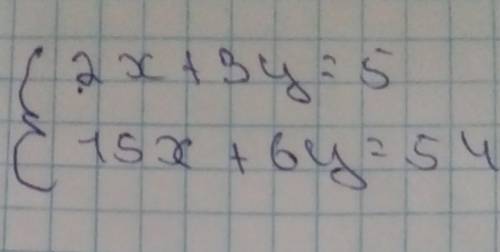 2x + 3y = 5
15x + 6y = 54